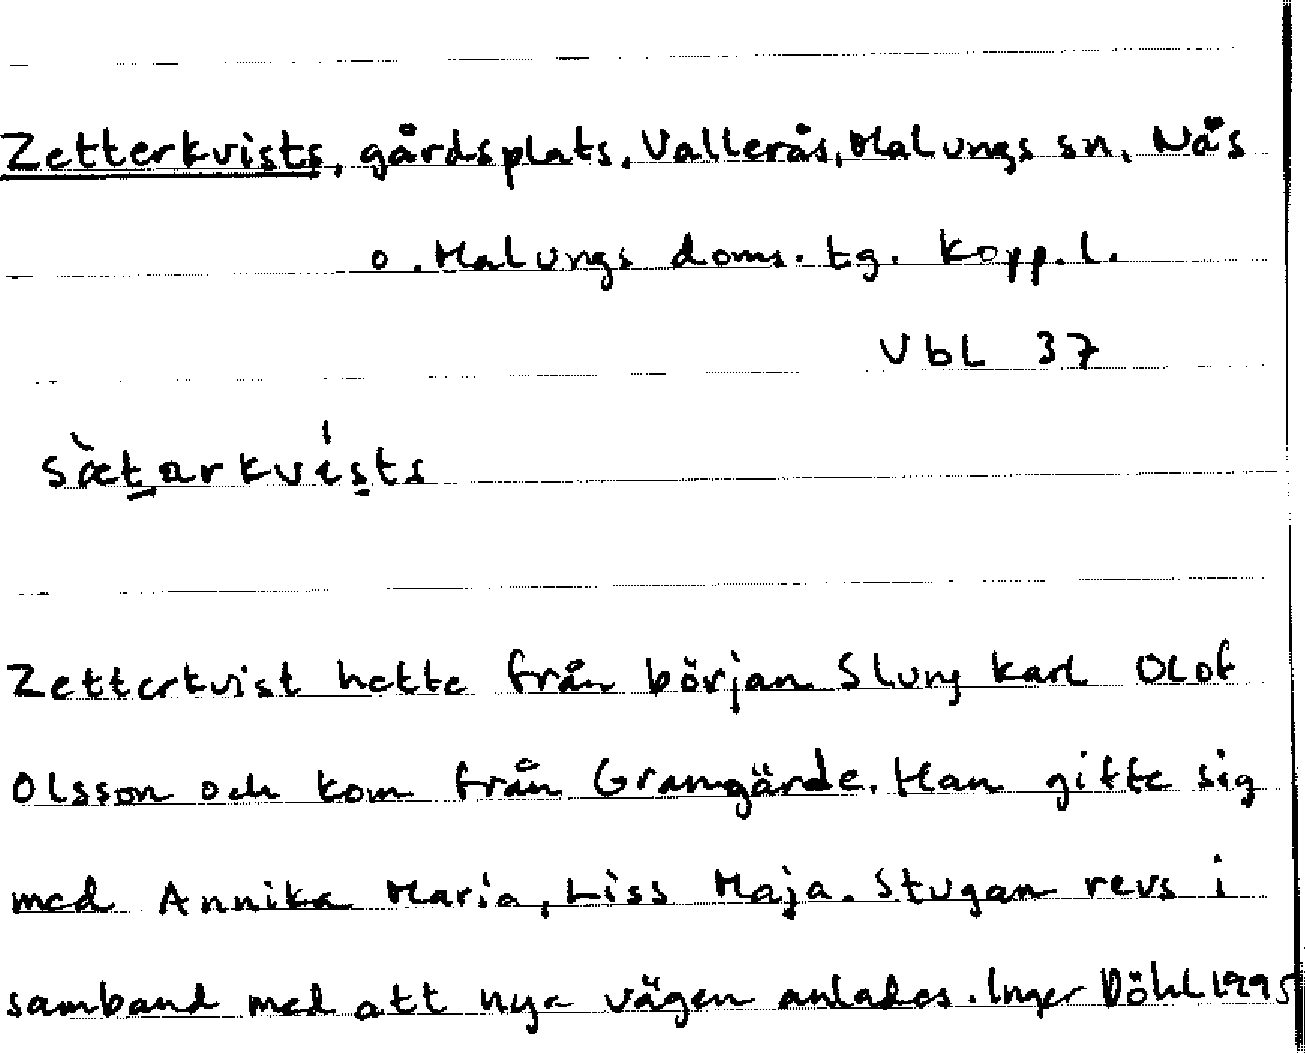 Zetterkvists, gårdsplats, Vallerås, Malungs sn, Nås
o. Malungs doms. tg. Kopp. l.
VbL 37
sæ̀tarkvísts
Zetterkvist hette från början Slung Karl Olof
Olsson och kom från Grangärde. Han gifte sig
med Annika Maria, Liss Maja. Stugan revs i
samband med att nya vägen anlades. Inger Döhl 1995